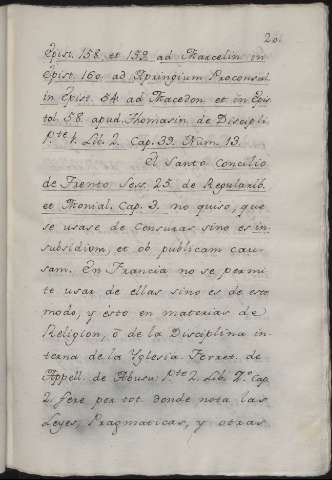 201
Epist. 158. et 159. ad Marcelin in
Epist. 160. ad Apringium Proconsul
in Epist. 54. ad Macedon et in Epis
tol. 58. apud Thomasin. de Discipli
P.te 1. Lib. 2. Cap. 39. Num. 13.
El Santo Concilio
de Trento Sess. 25. de Regularib.
et Monial. Cap. 3. no quiso, que
se usase de Censuras sino es in
subsidium, et ob publicam cau-
sam. En Francia no se permi
te usar de ellas sino es de este
modo, y esto en materias de
Religion, ò de la Disciplina in-
terna de la Yglesia Ferret. de
Appell. de Abusu P.te 2. Lib. 2.º Cap.
2. fere per tot. donde nota las
Leyes, Pragmaticas, y otras